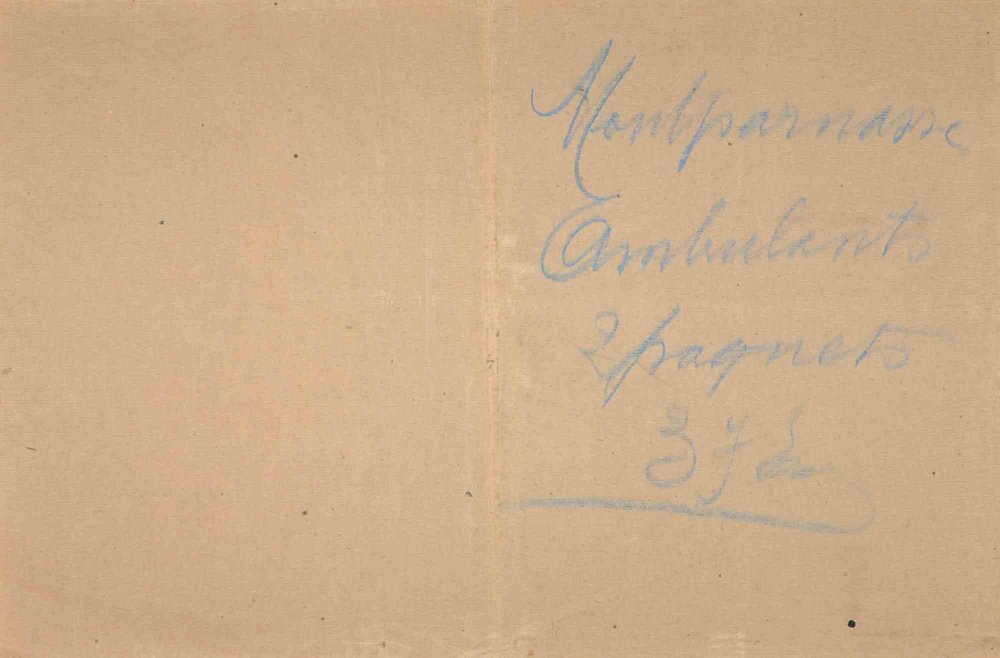 Montparnasse
Ambulants
2 paquets
37